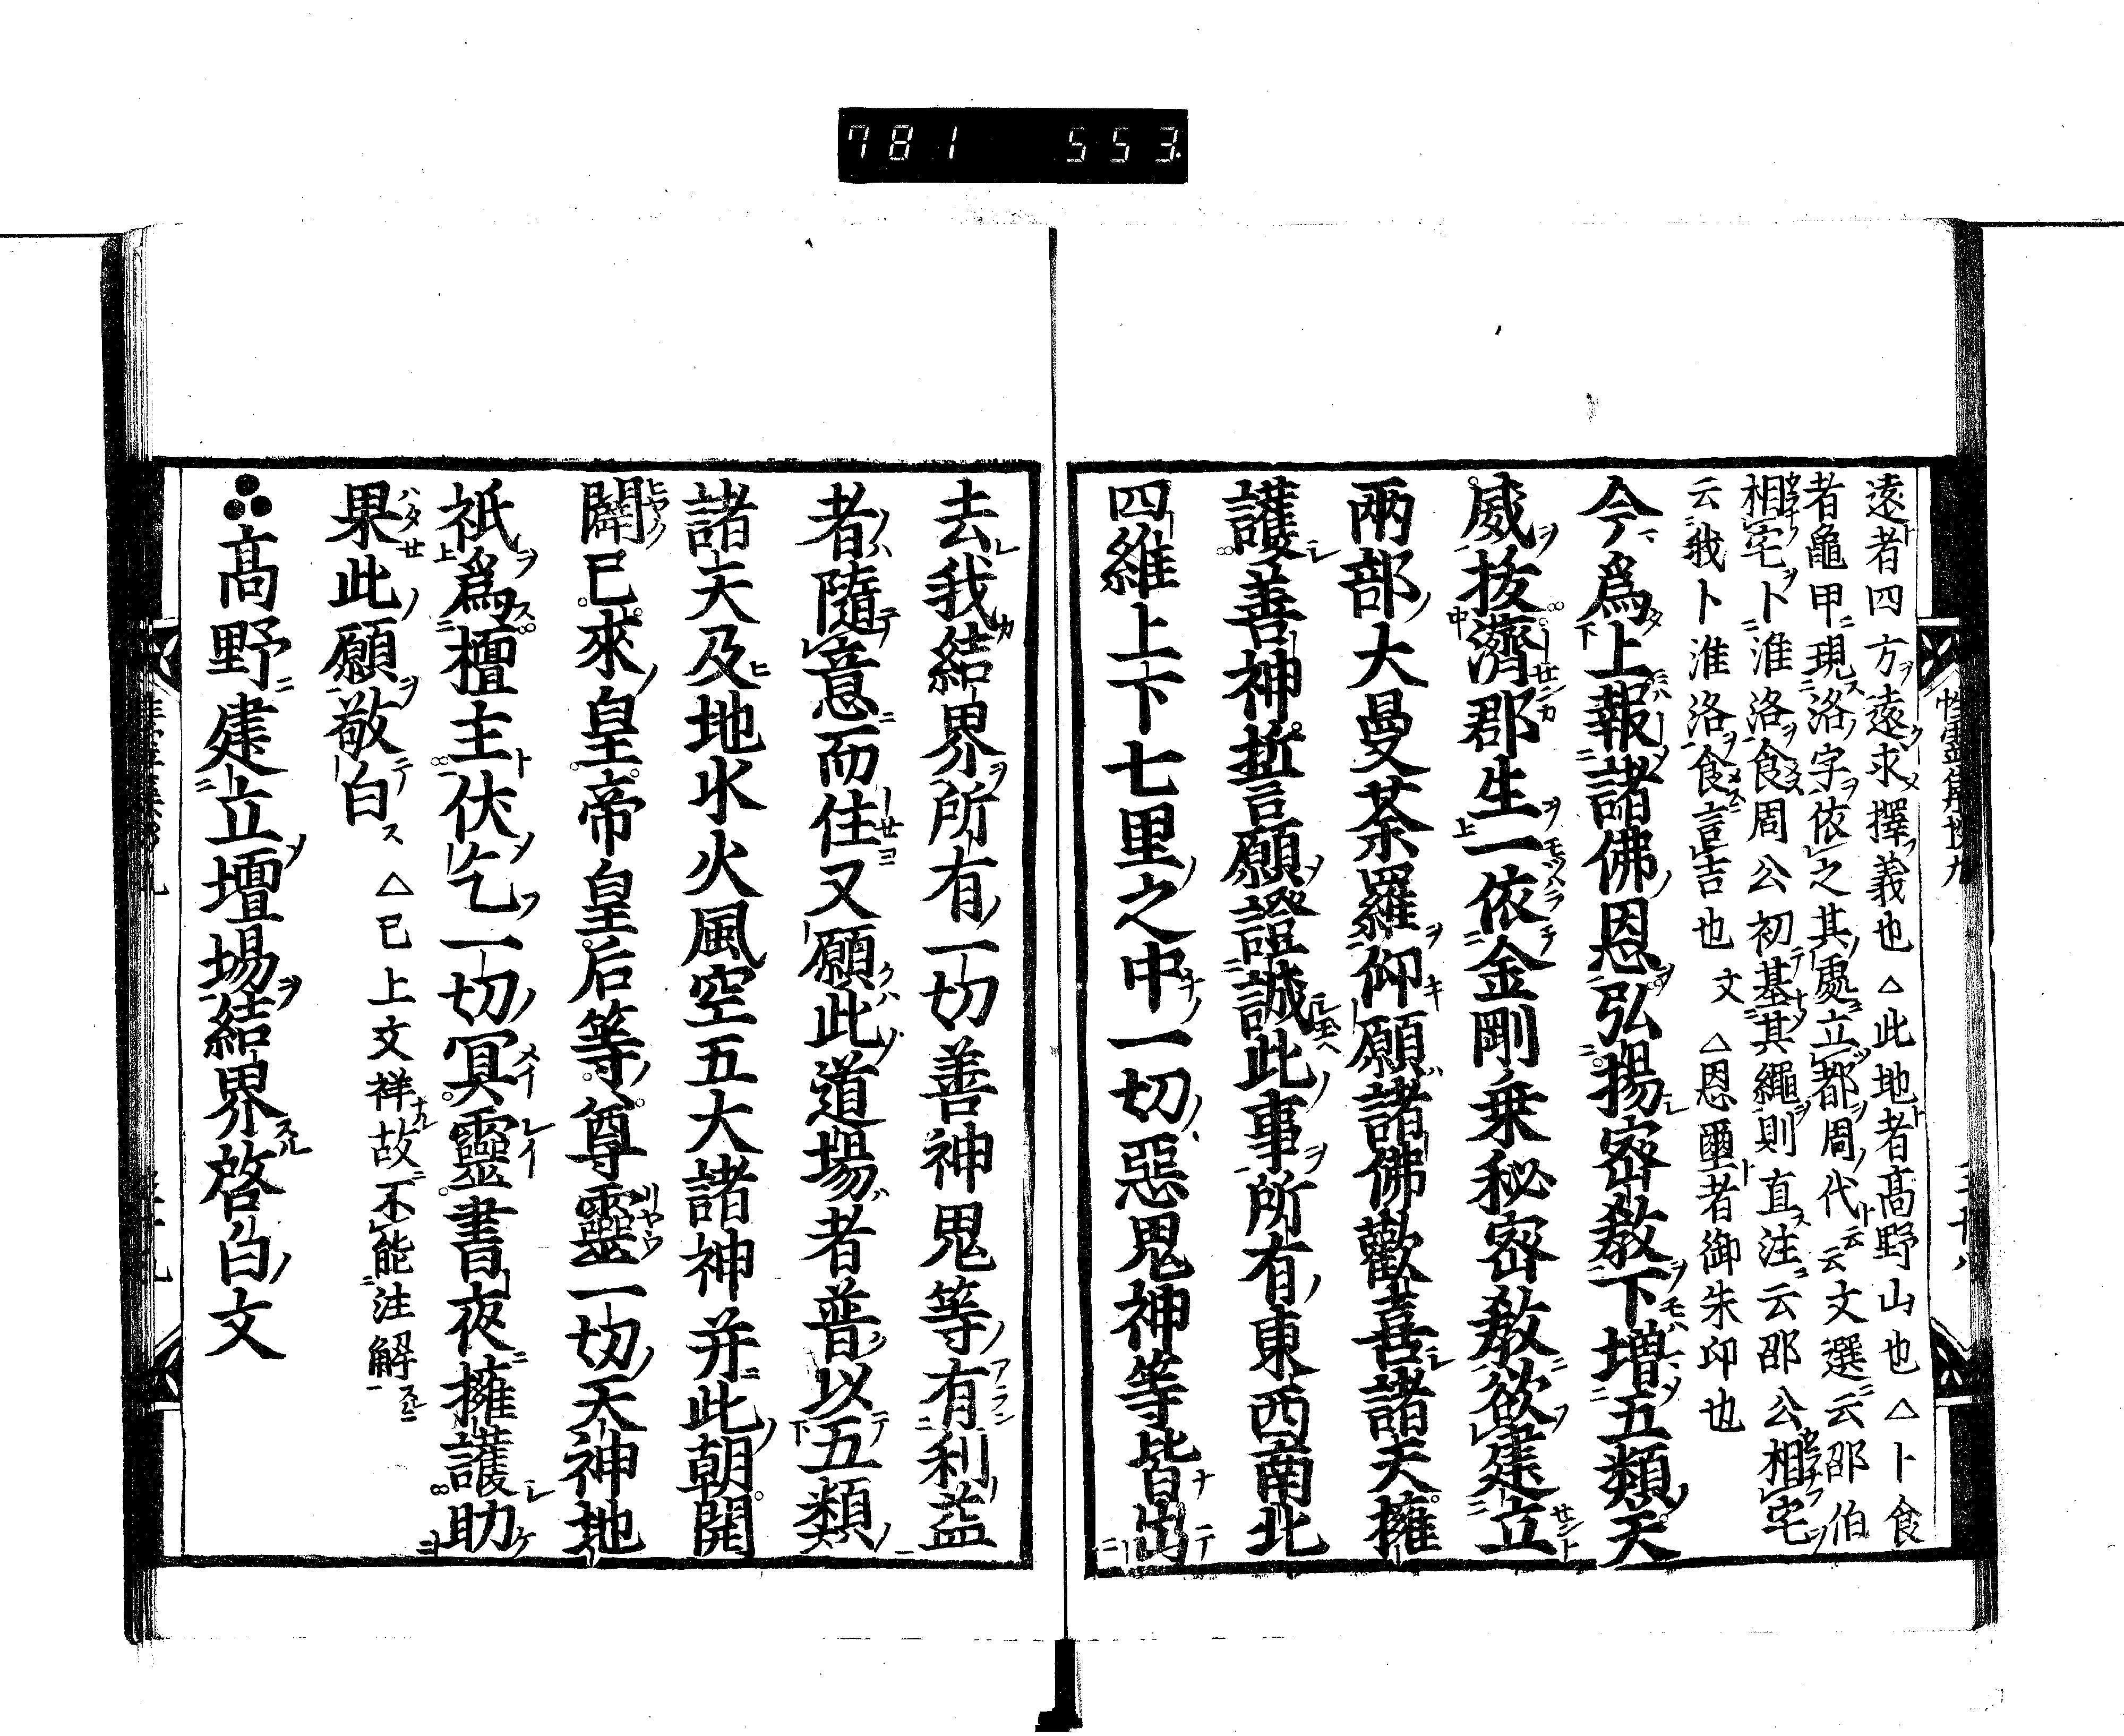 781 553
遠者四方遠求擇義也△此地者髙野山也△卜食
者龜甲現洛字依之其處立都周代云云文選云邵伯
相宅卜淮洛食周公初基其繩則直注云邵公相宅
云我卜淮洛食言吉也文△恩璽者御朱印也
今爲上報諸佛恩弘揚密教下増五類天
威抜濟郡生一依金剛乗秘密教欲建立
兩部大曼荼羅仰願諸佛歡喜諸天擁
護善神誓願證誠此事所有東西南北
四維上下七里之中一切惡鬼神等皆出
去我結界所有一切善神鬼等有利益
者隨意而住又願此道場者普以五類
諸天及地水火風空五大諸神并此朝開
闢已來皇帝皇后等尊靈一切天神地
祇爲檀主伏乞一切冥靈晝夜擁護助
果此願敬白△已上文祥故不能注解
髙野建立壇場結界啓白文